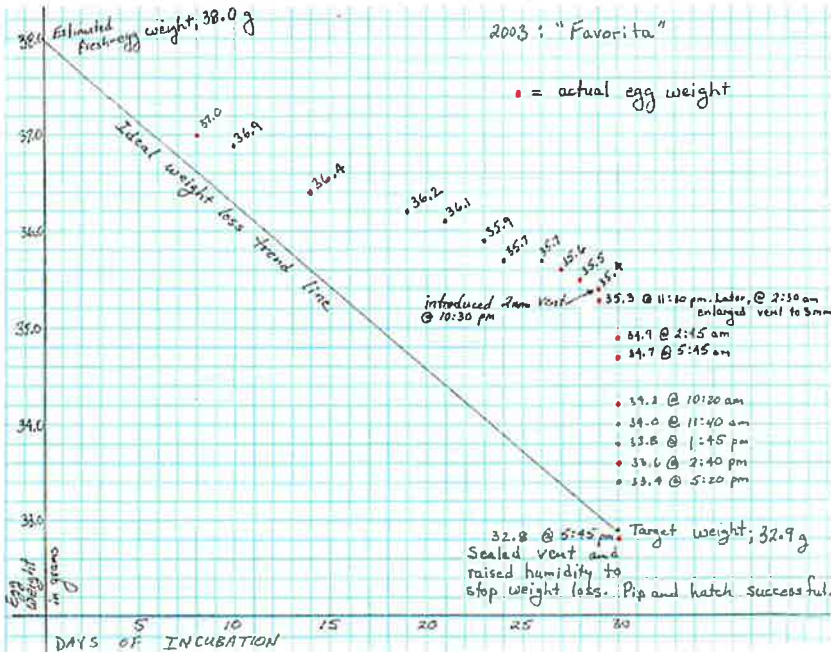 38.0 Estimated fresh-egg weight; 38.0 g
2003: "Favorita"
• = actual egg weight
37.0
37.0
36.9
Ideal weight loss trend line
36.4
36.2
36.1
36.0
35.9
35.7
35.7
35.6
35.5
35.4
introduced 2mm vent
@ 10:30 pm
35.3 @ 11:10 pm. Later, @ 2:30 am
enlarged vent to 3mm
35.0
34.9 @ 2:45 am
34.7 @ 5:45 am
34.2 @ 10:20 am
34.0
34.0 @ 11:40 am
33.8 @ 1:45 pm
33.6 @ 2:40 pm
33.4 @ 5:20 pm
33.0
32.8 @ 5:45 pm
Target weight; 32.9 g
Sealed vent and
raised humidity to
stop weight loss. Pip and hatch successful.
Egg weight in grams
5 10 15 20 25 30
DAYS OF INCUBATION